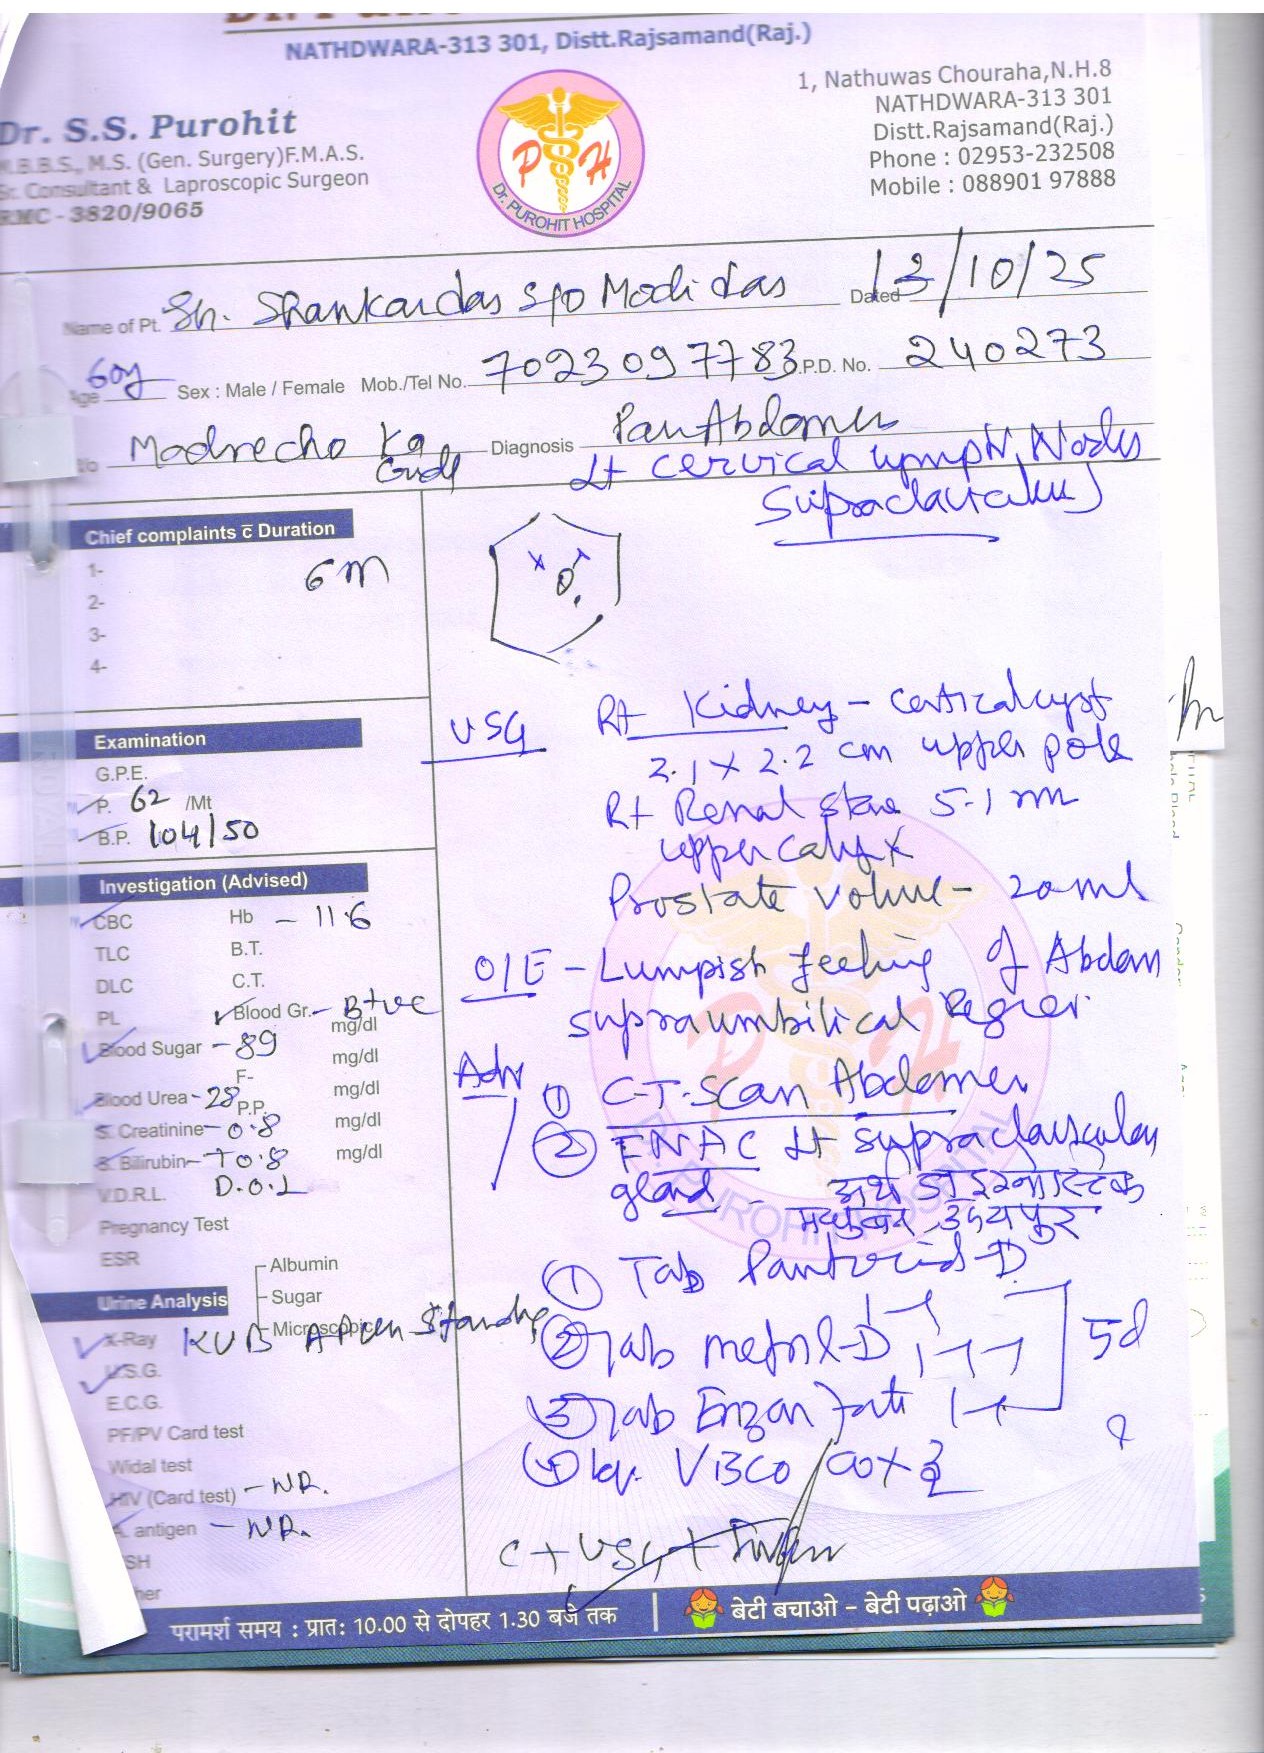 NATHDWARA-313 301, Distt.Rajsamand(Raj.)
Dr. S.S. Purohit
M.B.B.S., M.S. (Gen. Surgery)F.M.A.S.
Sr. Consultant & Laproscopic Surgeon
RMC - 3820/9065
P H
Dr. PUROHIT HOSPITAL
1, Nathuwas Chouraha,N.H.8
NATHDWARA-313 301
Distt.Rajsamand(Raj.)
Phone : 02953-232508
Mobile : 088901 97888
Name of Pt. Sh. Shankardas S/o Modi das Dated 13/10/25
Age 60y Sex : Male / Female Mob./Tel No. 7023097783 O.P.D. No. 240273
Madrecho Diagnosis Pain Abdomen
Lt cervical lymph Nodes
Chief complaints c̄ Duration
1- 6m
2-
3-
4-
Examination
G.P.E.
P. 62 /Mt
B.P. 104/50
Investigation (Advised)
CBC Hb - 11.6
TLC B.T.
DLC C.T.
PL Blood Gr. - B+ve
mg/dl
Blood Sugar - 89 mg/dl
F-
Blood Urea - 28 mg/dl
P.P.
S. Creatinine - 0.8 mg/dl
S. Bilirubin - T 0.8 mg/dl
V.D.R.L. D.0.2
Pregnancy Test
ESR
Albumin
Urine Analysis Sugar
Microscopic
X-Ray KUB standing
U.S.G.
E.C.G.
PF/PV Card test
Widal test
HIV (Card test) - NR.
A. antigen - NR.
USG
Rt Kidney - cortical cyst
2.2 cm upper pole
Rt Renal stone 5.1 mm
upper calyx
Prostate volume - 20ml
O/E - Lumpish feeling of Abdom
supraumbilical Region.
Adv
① C.T. Scan Abdomen
② FNAC Lt supraclavicular
gland - अर्थ डाइग्नोस्टिक
मधुबन, उदयपुर
① Tab Pantocid-D
② Tab Metnil-D 5d
③ Tab Enzar forte
④
परामर्श समय : प्रातः 10.00 से दोपहर 1.30 बजे तक | बेटी बचाओ – बेटी पढ़ाओ